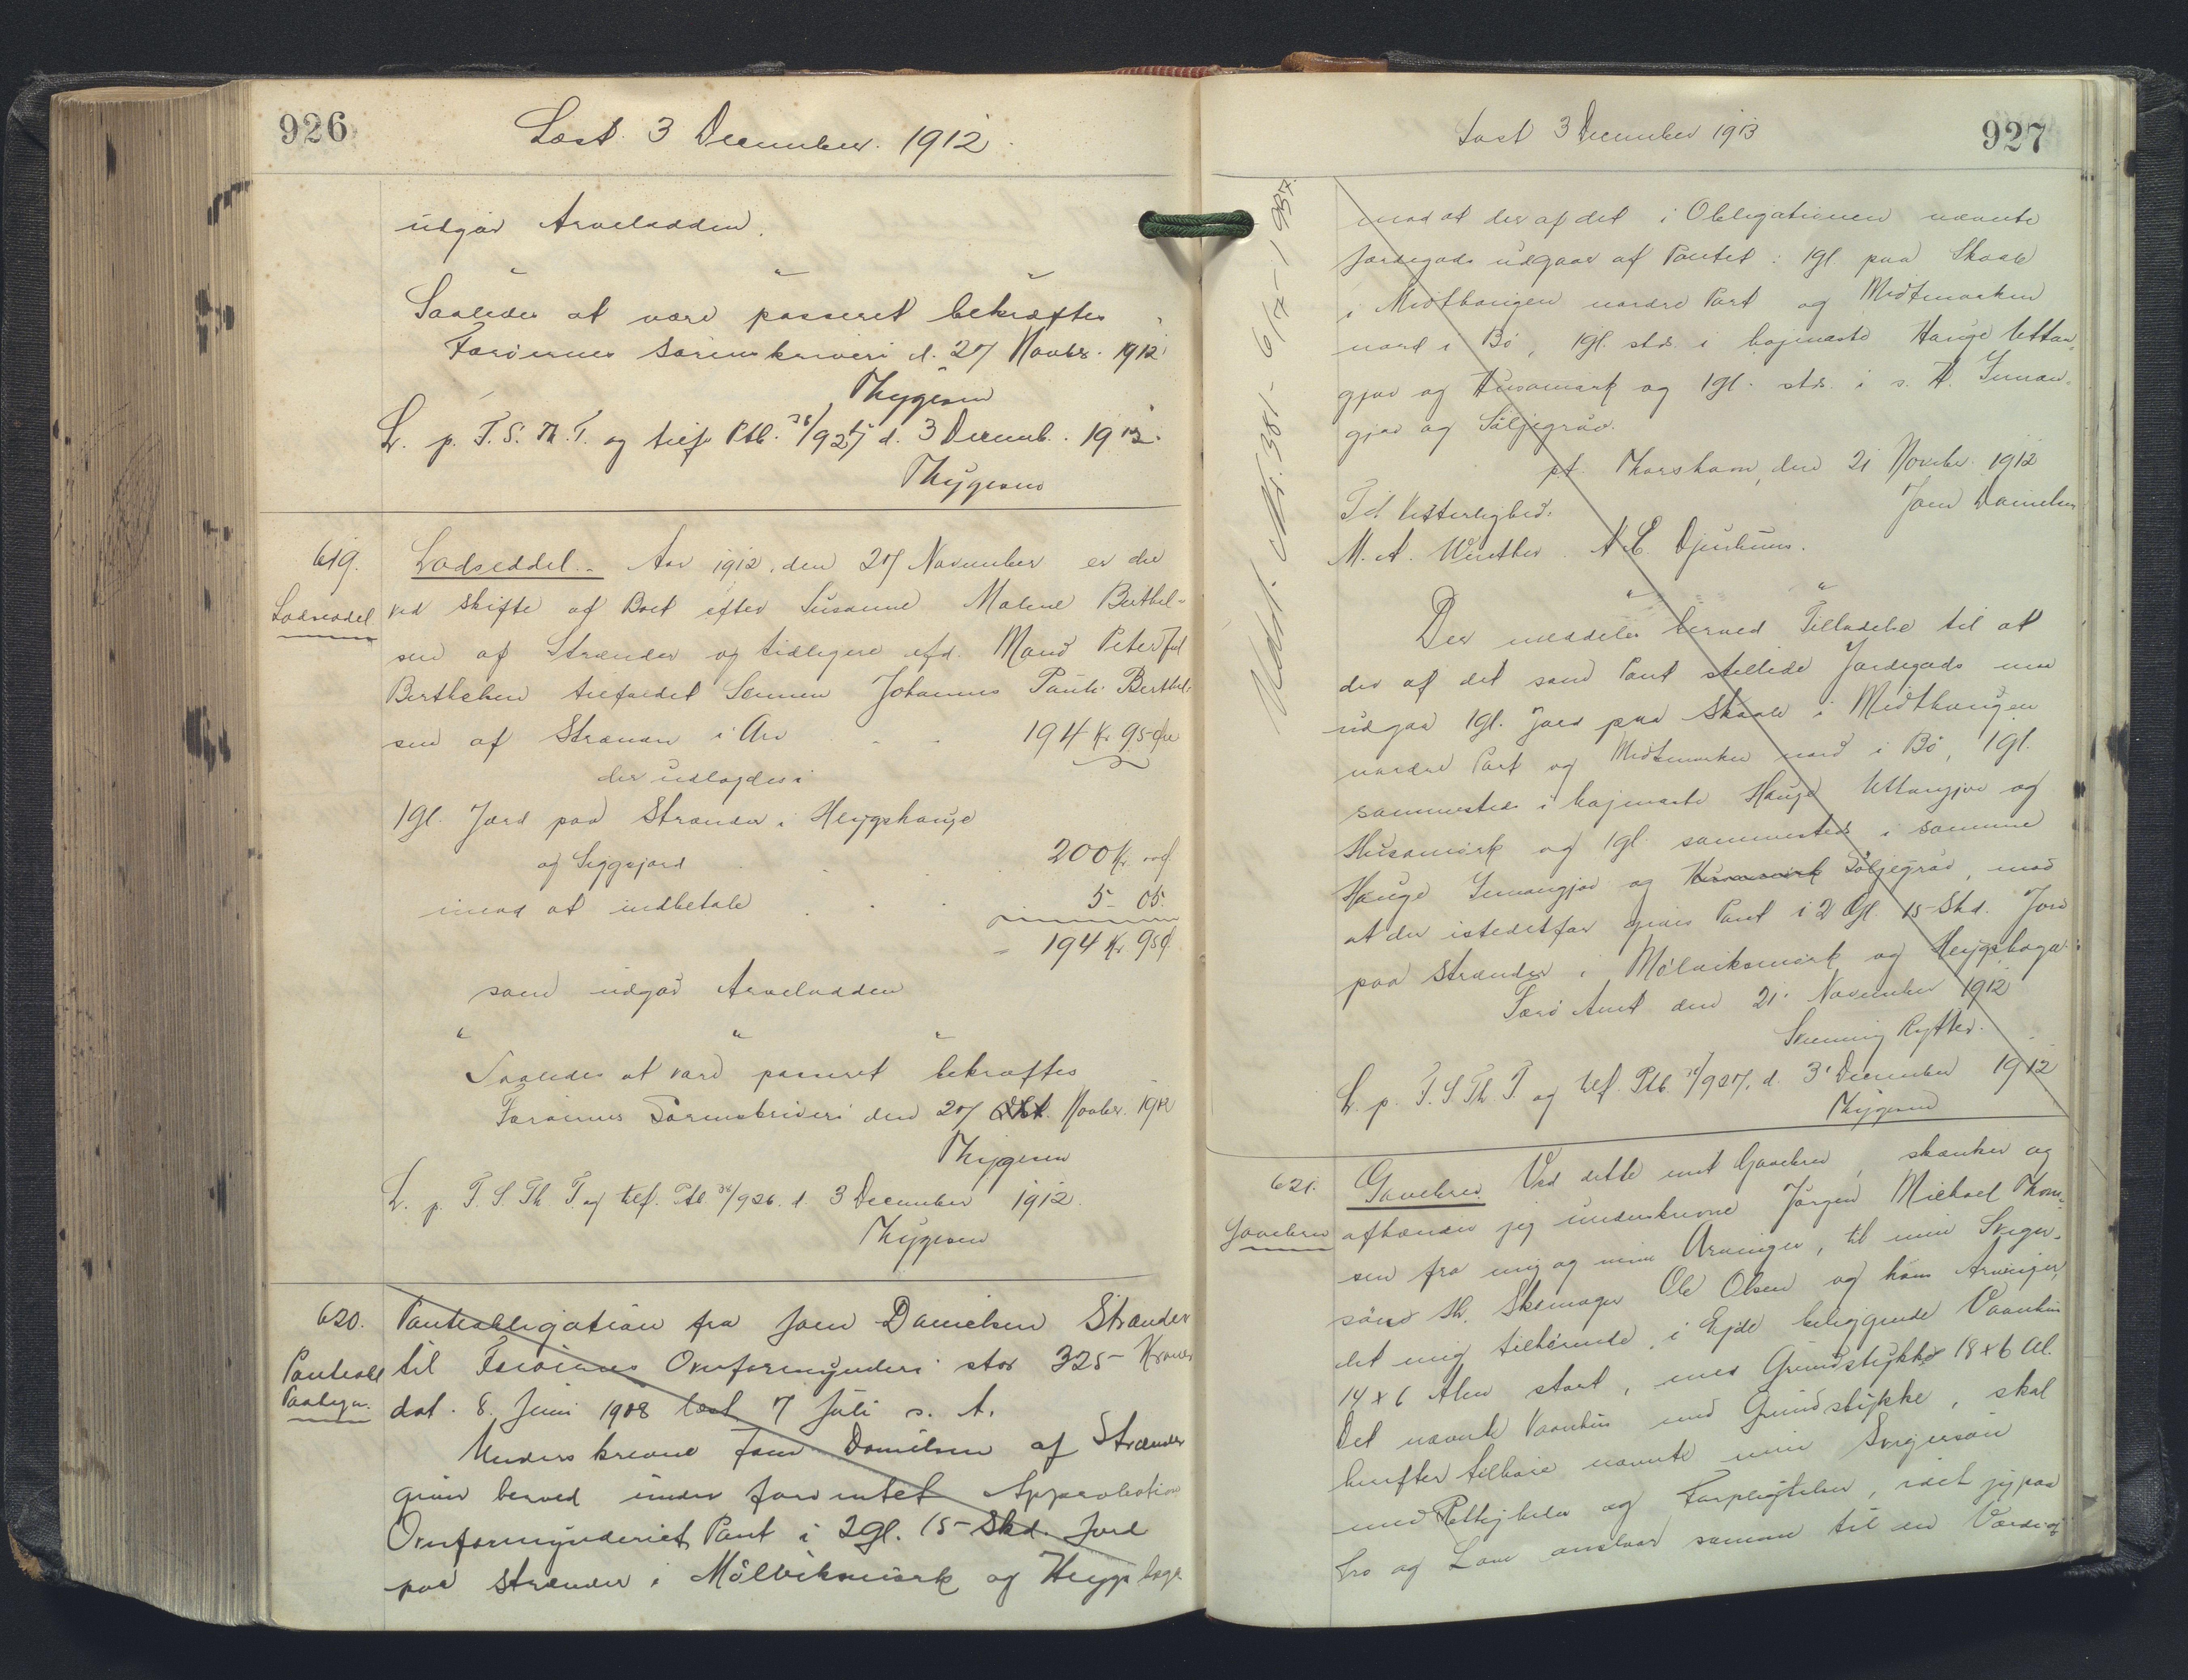 926
Læst 3 December 1912.
udgør Arvelodden.
Saaledes at være passeret bekræftes
Færøernes Sorenskriveri d. 27 Novbr. 1912
Thygesen
L. p. F. S. Th. T. og tilf. Ptb. d. 3 Decemb. 1912.
Thygesen
619.
Lodseddel
Lodseddel. Aar 1912, den 27 November er der
ved Skifte af Boet efter Susanne Malene Berthel-
sen af Strænder og tidligere afd. Mand Peter Joel
Berthelsen tilfaldet Sønnen Johannes Pauli Berthel-
sen af Strænder i Arv 194 Kr 95 Øre
der udlagdes i
1 Gl. Jord paa Strænder i Heygshauge
og Liggejord 200 Kr.
imod at indbetale 5 - 05.
= 194 Kr 95 Ø
som udgør Arvelodden
Saaledes at være passeret bekræftes
Færøernes Sorenskriveri den 27 Novbr. 1912
Thygesen
L. p. F. S. Th. T. og tilf. Ptb. /926. d. 3 December 1912.
Thygesen
620.
Panteobl
Paategn.
Panteobligation fra Joen Danielsen Strænder
til Færøernes Overformynderi stor 325 - Kroner
dat. 8. Juni 1908 læst 7 Juli s. A.
Underskrevne Joen Danielsen af Strænder
giver herved under forventet Approbation
Overformynderiet Pant i 2 Gl. 15 Skd. Jord
paa Strænder i Mølviksmørk og Heygshage
Læst 3 December 1913
927
Udsl. Nr. 381 - 6/7 - 1937.
mod at der af det i Obligationen nævnte
Jordegods udgaar af Pantet: 1 Gl. paa Skaale
i Midthaugen nordre Part og Midtmarken
nord i Bø, 1 Gl. stds. i høgneste Hauge Uttan-
gjov og Husamørk og 1 Gl. stds. i s. H. Innan-
gjov og Siljegrav.
pt. Thorshavn, den 21 Novbr. 1912
Joen Danielsen
Til Vitterlighed:
M. A. Winther. A C. Djurhuus.
Der meddeles herved Tilladelse til at
der af det som Pant stillede Jordegods maa
udgaa 1 Gl. Jord paa Skaale i Midthaugen
nordre Part og Midtmarken nord i Bø, 1 Gl.
sammesteds i høgneste Hauge Uttangjov og
Husamørk og 1 Gl. sammesteds i samme
Hauge Innangjov og Husamørk Siljegrav, mod
at der istedetfor gives Pant i 2 Gl. 15 Skd. Jord
paa Strænder i Mølviksmørk og Heygshage.
Færø Amt den 21. November 1912
Svenning Rytter.
L. p. F. S. Th. T. og tilf. Ptb. /927, d. 3' December 1912
Thygesen
621.
Gavebrev
Gavebrev. Ved dette mit Gavebrev, skænker og
afhænder jeg underskrevne Jørgen Michael Thom-
sen fra mig og mine Arvinger, til min Sviger-
søn Skomager Ole Olsen og hans Arvinger,
det mig tilhørende, i Ejde beliggende Vaanhus
14 x 6 Alen stort, med Grundstykke 18 x 6 Al.
Det nævnte Vaanhus med Grundstykke, skal
herefter tilhøre nævnte min Svigersøn
med Rettigheder og Forpligtelser, idet jeg paa
Tro og Love ansætter samme til en Værdi af